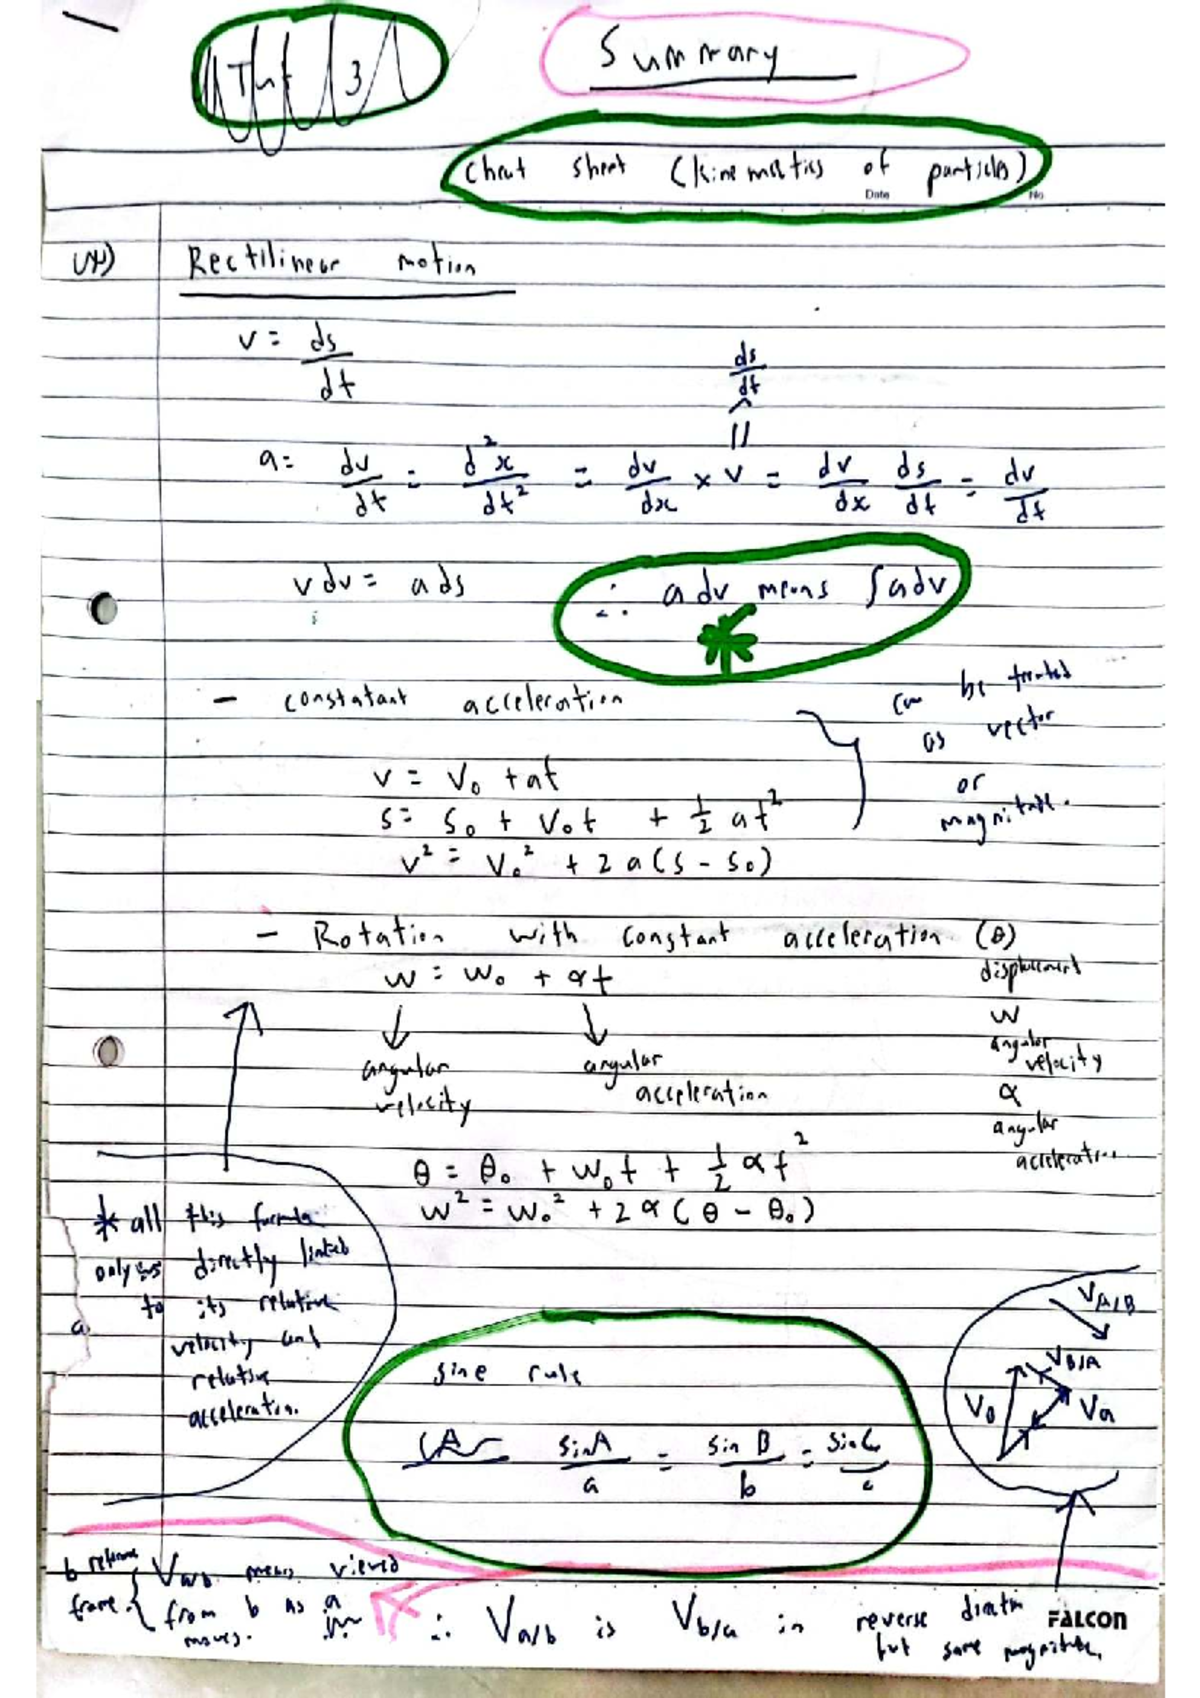 Tut 3
Summary
cheat sheet (kinematics of particles)
Date
No
Rectilinear motion
v = ds/dt
ds/dt
||
a = dv/dt = d²x/dt² = dv/dx × v = dv/dx ds/dt = dv/dt
v dv = a ds
∴ a dv means ∫ a dv
- constatant acceleration
can be treated
as vector
or
magnitude.
v = v₀ + at
s = s₀ + v₀t + 1/2 at²
v² = v₀² + 2a(s - s₀)
- Rotation with constant acceleration (θ)
displacement
w = w₀ + αt
w
angular
velocity
angular velocity
angular acceleration
α
angular
acceleration
θ = θ₀ + w₀t + 1/2 αt²
w² = w₀² + 2α(θ - θ₀)
* all this formula
only is directly linked
to its relative
velocity and
relative
acceleration.
a
sine rule
sinA/a = sin B/b = sin C/c
V A/B
V B/A
Va
b reference
frame.
means viewed
from b as a
moves.
∴ Va/b is Vb/a in reverse direction
but same magnitude.
FALCON